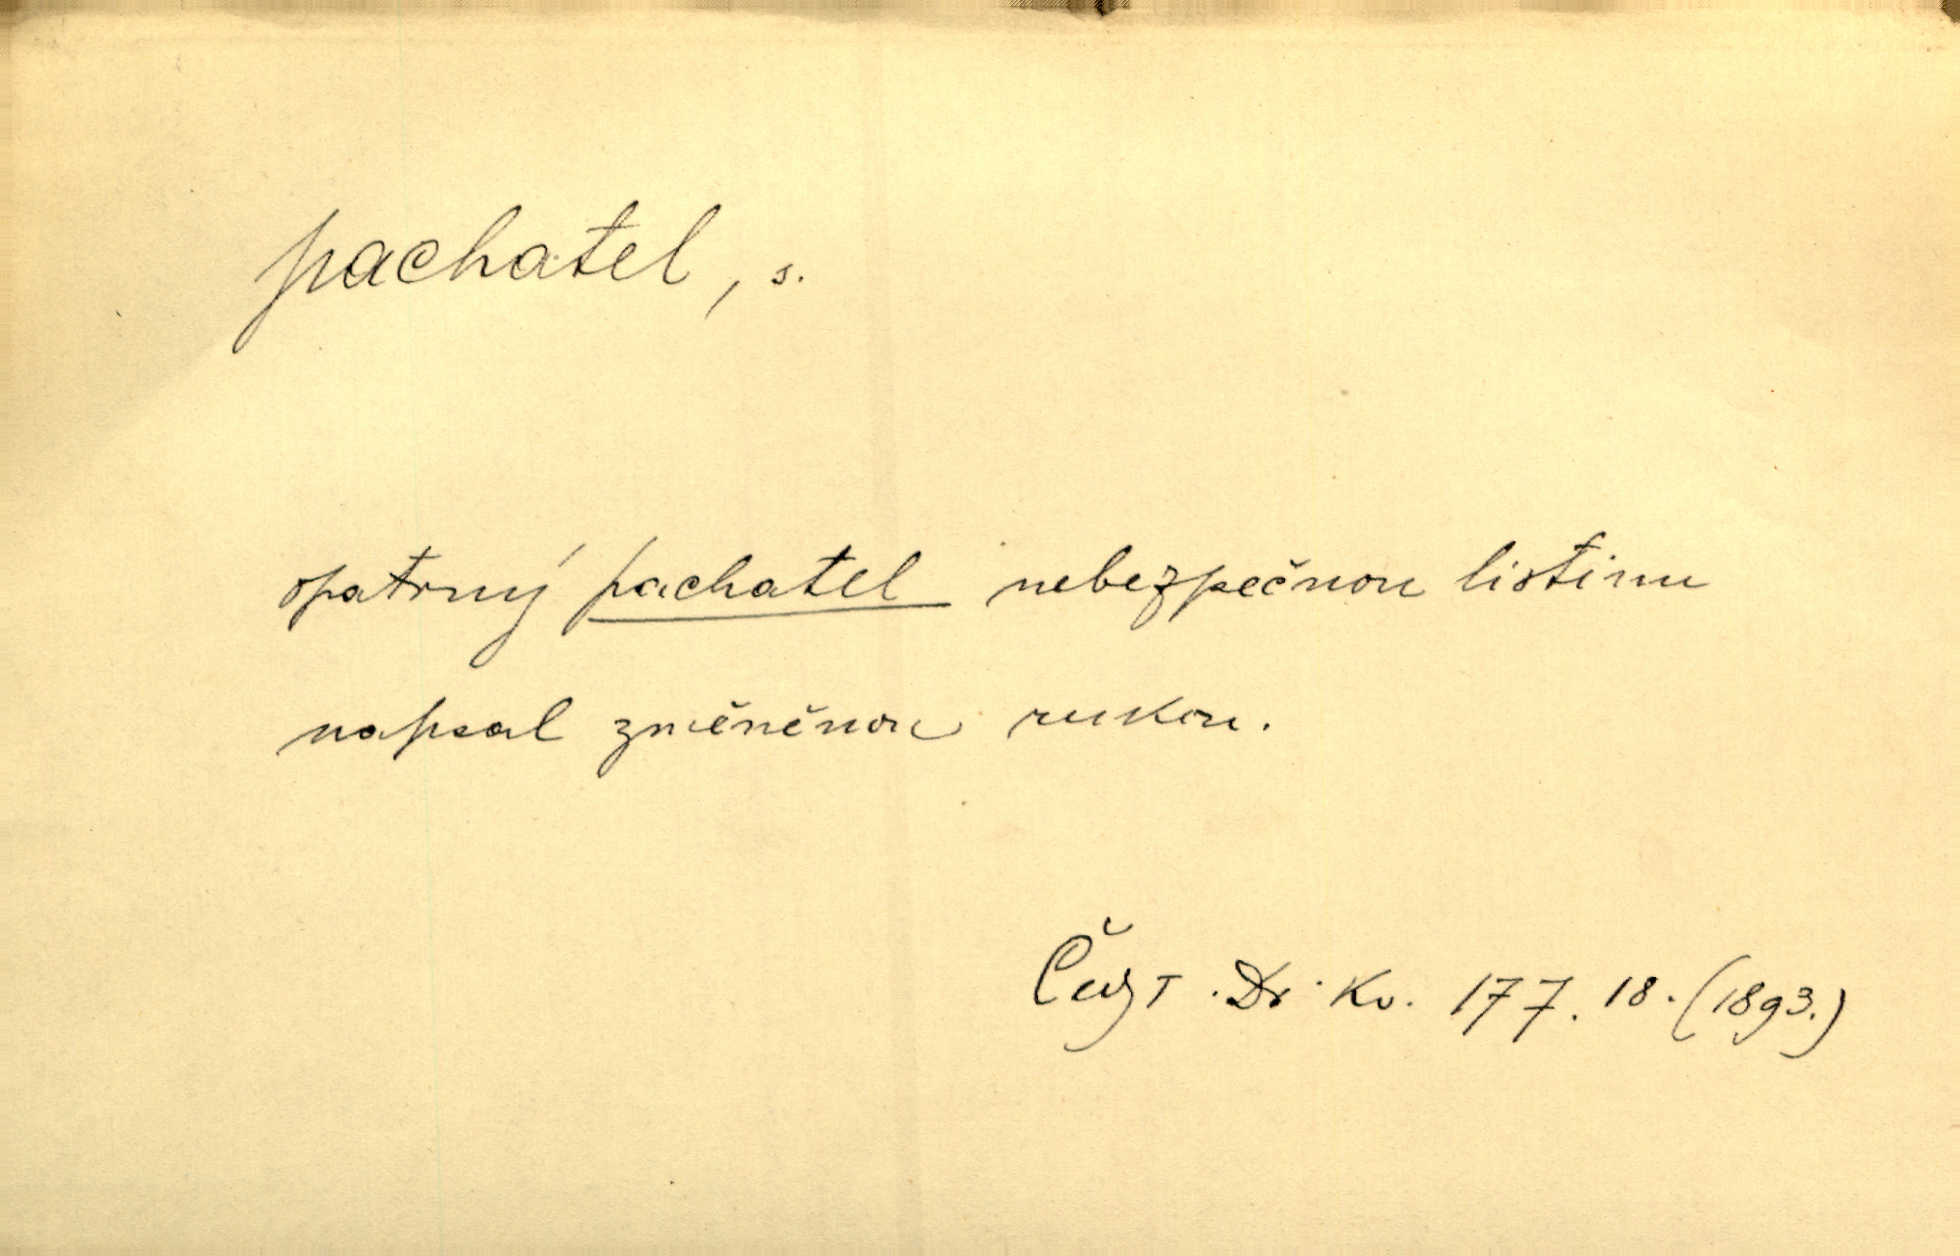 pachatel, s.
opatrný pachatel nebezpečnou listinu
napsal změněnou rukou.
Dr. Kv. 177. 18. (1893.)